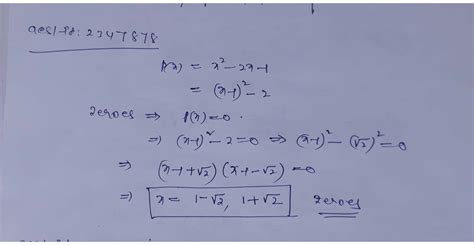 aes/-Id: 2347878
p(x) = x² - 2x - 1
= (x-1)² - 2
zeroes ⇒ p(x) = 0.
⇒ (x-1)² - 2 = 0 ⇒ (x-1)² - (√2)² = 0
⇒ (x-1+√2) (x-1-√2) = 0
⇒ x = 1-√2, 1+√2 zeroes